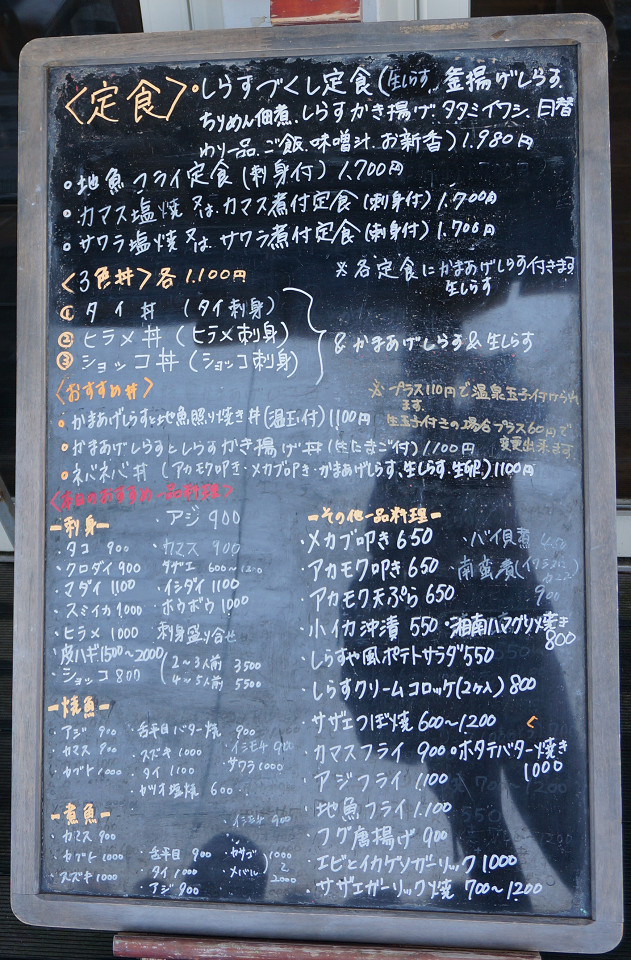 〈定食〉・しらすづくし定食(生しらす、釜揚げしらす、
ちりめん佃煮、しらすかき揚げ、タタミイワシ、日替
わり一品、ご飯、味噌汁、お新香) 1.980円
・地魚フライ定食(刺身付) 1.700円
・カマス塩焼 又は、カマス煮付定食(刺身付) 1.700円
・サワラ塩焼 又は、サワラ煮付定食(刺身付) 1.700円
〈3色丼〉各 1.100円
※各定食にかまあげしらす付きます
生しらす
① タイ丼 (タイ刺身)
② ヒラメ丼 (ヒラメ刺身)
③ ショッコ丼 (ショッコ刺身)
& かまあげしらす & 生しらす
〈おすすめ丼〉
※プラス110円で温泉玉子付けられ
ます
生玉子付きの場合プラス60円で
変更出来ます
・かまあげしらすと地魚照り焼き丼(温玉付) 1100円
・かまあげしらすとしらすかき揚げ丼(生たまご付) 1.100円
・ネバネバ丼 (アカモク叩き・メカブ叩き・かまあげしらす、生しらす、生卵) 1100円
〈本日のおすすめ一品料理〉
-刺身-
・アジ 900
・タコ 900 ・カマス 900
・クロダイ 900 サザエ 600〜1200
・マダイ 1100 ・イシダイ 1100
・スミイカ 1000 ・ホウボウ 1000
・ヒラメ 1000 刺身盛り合せ
・皮ハギ 1500〜2000 (2〜3人前 3500
・ショッコ 800 4〜5人前 5500
-焼魚-
・アジ 900 ・舌平目バター焼 900
・カマス 900 ・スズキ 1000 ・イシモチ 900
・カブト 1000 ・タイ 1100 サワラ 1000
・ゼツオ塩焼 600
-煮魚-
・イシモチ 900
・カマス 900
・カブト 1000 ・舌平目 900 ・カサゴ 1000
・スズキ 1000 ・タイ 1000 ・メバル 2000
・アジ 900
-その他一品料理-
・メカブ叩き 650 ・バイ貝煮
・アカモク叩き 650 南蛮漬
・アカモク天ぷら 650 900
・小イカ沖漬 550 ・湘南ハマグリバター焼き
800
・しらすや風ポテトサラダ 550
・しらすクリームコロッケ(2ヶ入) 800
・サザエつぼ焼 600〜1200
・カマスフライ 900 ・ホタテバター焼き
1000
・アジフライ 1100
・地魚フライ 1.100
・フグ唐揚げ 900
・エビとイカゲソガーリック 1000
・サザエガーリック焼 700〜1200